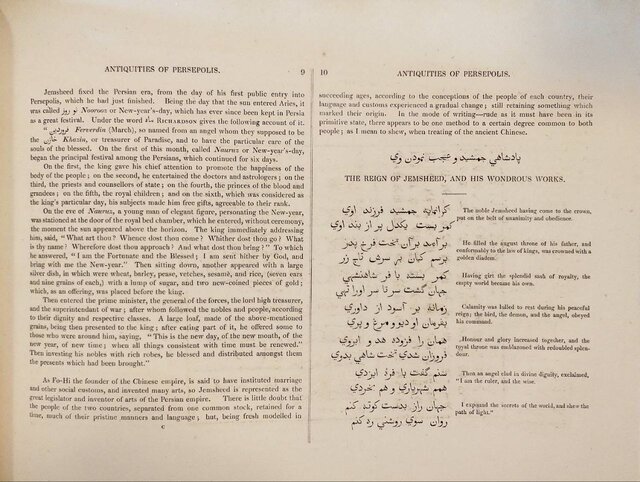 ANTIQUITIES OF PERSEPOLIS. 9
Jemsheed fixed the Persian era, from the day of his first public entry into
Persepolis, which he had just finished. Being the day that the sun entered Aries, it
was called نو روز Nooroos or New-year's-day, which has ever since been kept in Persia
as a great festival. Under the word ماه RICHARDSON gives the following account of it.
" فروردين Ferverdin (March), so named from an angel whom they supposed to be
the خازن Khazin, or treasurer of Paradise, and to have the particular care of the
souls of the blessed. On the first of this month, called Naurus or New-year's-day,
began the principal festival among the Persians, which continued for six days.
On the first, the king gave his chief attention to promote the happiness of the
body of the people; on the second, he entertained the doctors and astrologers; on the
third, the priests and counsellors of state; on the fourth, the princes of the blood and
grandees; on the fifth, the royal children; and on the sixth, which was considered as
the king's particular day, his subjects made him free gifts, agreeable to their rank.
On the eve of Naurus, a young man of elegant figure, personating the New-year,
was stationed at the door of the royal bed chamber, which he entered, without ceremony,
the moment the sun appeared above the horizon. The king immediately addressing
him, said, "What art thou? Whence dost thou come? Whither dost thou go? What
is thy name? Wherefore dost thou approach? And what dost thou bring?" To which
he answered, "I am the Fortunate and the Blessed; I am sent hither by God, and
bring with me the New-year." Then sitting down, another appeared with a large
silver dish, in which were wheat, barley, pease, vetches, sesamé, and rice, (seven ears
and nine grains of each,) with a lump of sugar, and two new-coined pieces of gold;
which, as an offering, was placed before the king.
Then entered the prime minister, the general of the forces, the lord high treasurer,
and the superintendant of war; after whom followed the nobles and people, according
to their dignity and respective classes. A large loaf, made of the above-mentioned
grains, being then presented to the king; after eating part of it, he offered some to
those who were around him, saying, "This is the new day, of the new month, of the
new year, of new time; when all things consistent with time must be renewed."
Then investing his nobles with rich robes, he blessed and distributed amongst them
the presents which had been brought."
As Fo-Hi the founder of the Chinese empire, is said to have instituted marriage
and other social customs, and invented many arts, so Jemsheed is represented as the
great legislator and inventor of arts of the Persian empire. There is little doubt that
the people of the two countries, separated from one common stock, retained for a
time, much of their pristine manners and language; but, being fresh modelled in
C
10 ANTIQUITIES OF PERSEPOLIS.
succeeding ages, according to the conceptions of the people of each country, their
language and customs experienced a gradual change; still retaining something which
marked their origin. In the mode of writing—rude as it must have been in its
primitive state, there appears to be one method to a certain degree common to both
people; as I mean to shew, when treating of the ancient Chinese.
پادشاهي جمشيد و عجب نمودن وي
THE REIGN OF JEMSHEED, AND HIS WONDROUS WORKS.
كرانمايه جمشيد فرزند اوي
كمر بست يكدل پر از پند اوي
The noble Jemsheed having come to the crown,
put on the belt of unanimity and obedience.
برآمد برآن تخت فرخ پدر
برسم كيان بر سرش تاج زر
He filled the august throne of his father, and
conformably to the law of kings, was crowned with a
golden diadem.
كمر بسته با فر شاهنشهي
جهان گشت سر تا سر اورا تهي
Having girt the splendid sash of royalty, the
empty world became his own.
زمانه بر آسود از داوري
بفرمان او ديو و مرغ و پري
Calamity was lulled to rest during his peaceful
reign; the bird, the demon, and the angel, obeyed
his command.
همان را فزوده هد و ابروي
فروزان شدي تخت شاهي بدوي
Honour and glory increased together, and the
royal throne was emblazoned with redoubled splen-
dour.
منم گفت با فره ايزدي
همم شهرياري و هم بخردي
Then an angel clad in divine dignity, exclaimed,
"I am the ruler, and the wise.
جهان راز بدست كوته كنم
روان سوي روشني ره كنم
I expound the secrets of the world, and shew the
path of light."